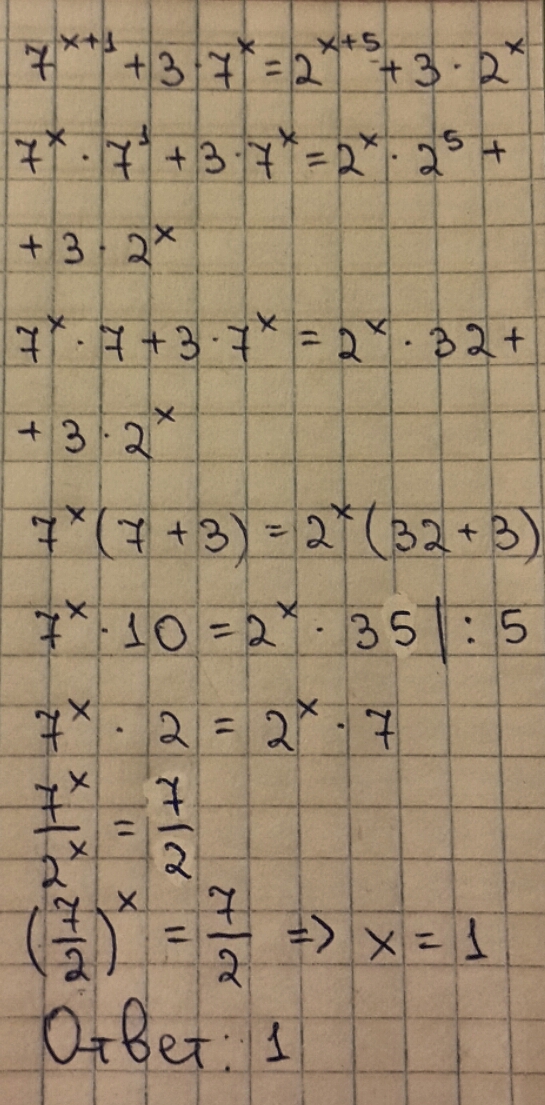 7^{x+1} + 3 · 7^x = 2^{x+5} + 3 · 2^x
7^x · 7^1 + 3 · 7^x = 2^x · 2^5 +
+ 3 · 2^x
7^x · 7 + 3 · 7^x = 2^x · 32 +
+ 3 · 2^x
7^x (7 + 3) = 2^x (32 + 3)
7^x · 10 = 2^x · 35 | : 5
7^x · 2 = 2^x · 7
\frac{7^x}{2^x} = \frac{7}{2}
(\frac{7}{2})^x = \frac{7}{2} => x = 1
Ответ: 1